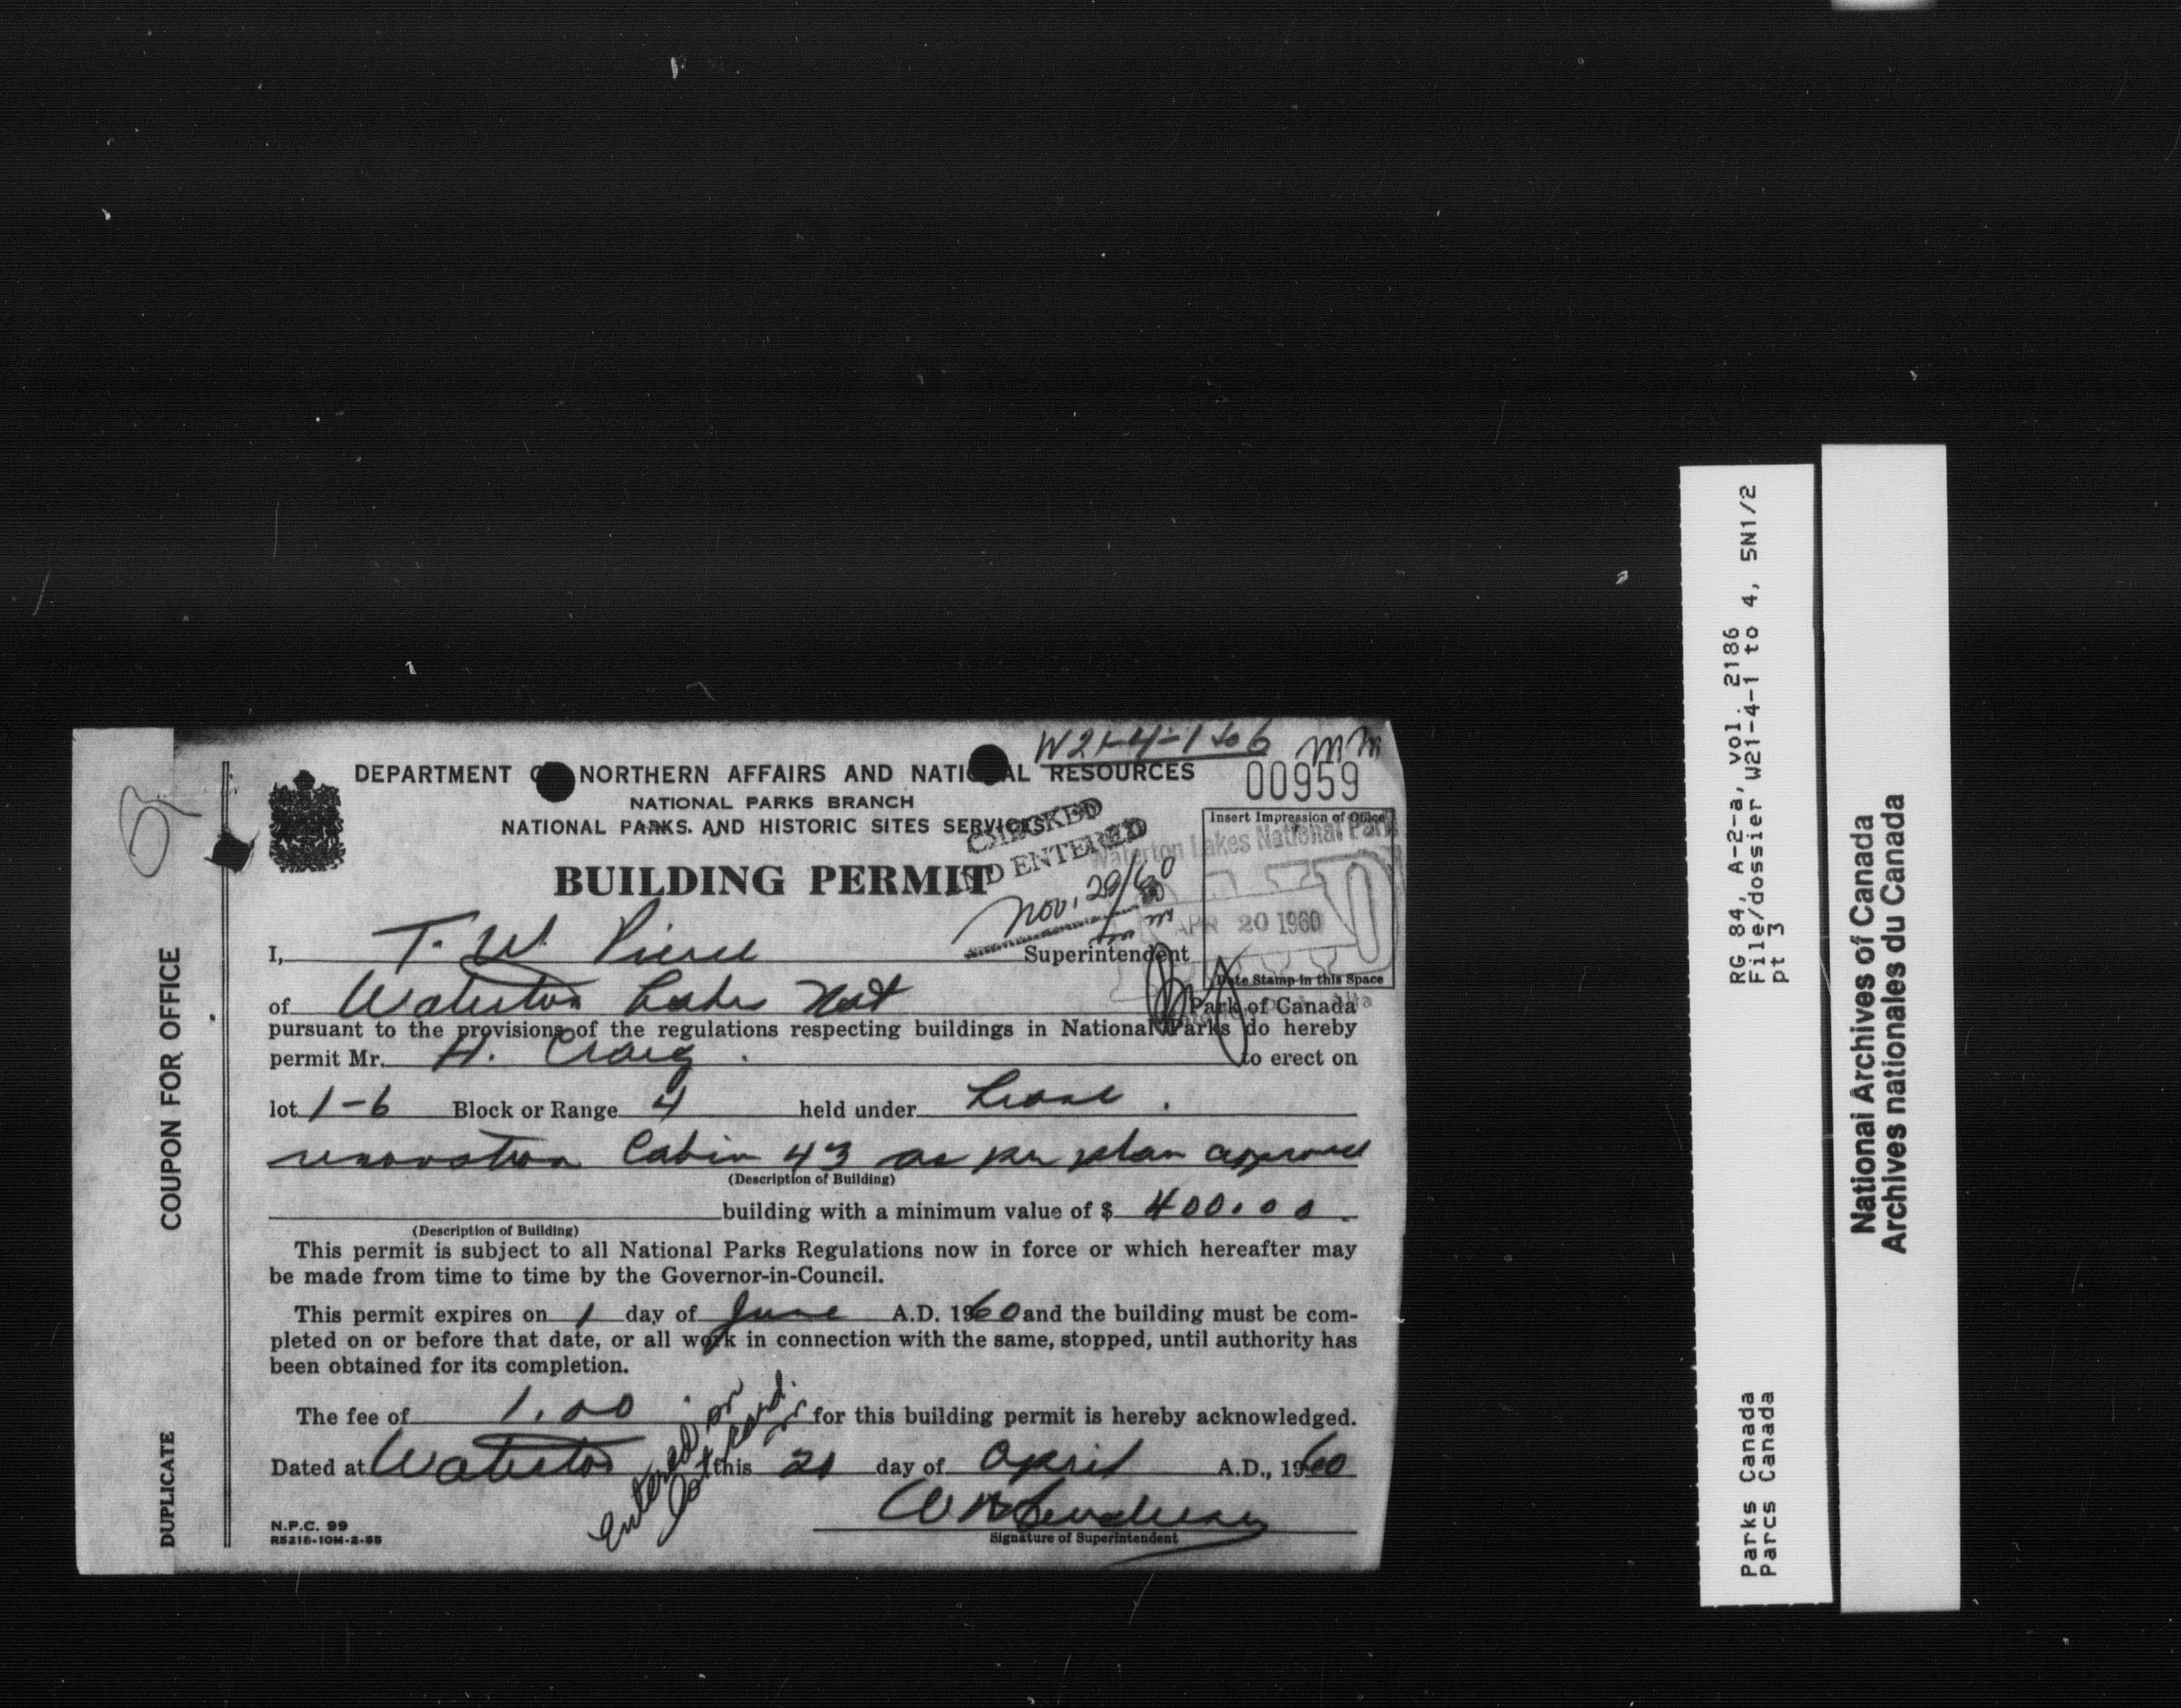 W21-4-1 to 6 MM
DEPARTMENT OF NORTHERN AFFAIRS AND NATIONAL RESOURCES
00959
NATIONAL PARKS BRANCH
NATIONAL PARKS AND HISTORIC SITES SERVICES
CHECKED
AND ENTERED
Nov. 29/60
Insert Impression of Office
Waterton Lakes National Park
APR 20 1960
Date Stamp in this Space
BUILDING PERMIT
I, T. W. Pierce Superintendent
of Waterton Lakes Nat Park of Canada
pursuant to the provisions of the regulations respecting buildings in National Parks do hereby
permit Mr. H. Craig. to erect on
lot 1-6 Block or Range 4 held under Lease.
renovation Cabin 43 as per plan approved
(Description of Building)
building with a minimum value of $ 400.00.
(Description of Building)
This permit is subject to all National Parks Regulations now in force or which hereafter may
be made from time to time by the Governor-in-Council.
This permit expires on 1 day of June A.D. 1960 and the building must be com-
pleted on or before that date, or all work in connection with the same, stopped, until authority has
been obtained for its completion.
The fee of 1.00 for this building permit is hereby acknowledged.
Dated at Waterton this 20 day of April A.D., 1960
Entered on
Lot card.
Signature of Superintendent
N.P.C. 99
R5218-10M-2-55
COUPON FOR OFFICE
DUPLICATE
RG 84, A-2-a, vol. 2186
File/dossier W21-4-1 to 4, 5N1/2
pt 3
Parks Canada
Parcs Canada
National Archives of Canada
Archives nationales du Canada